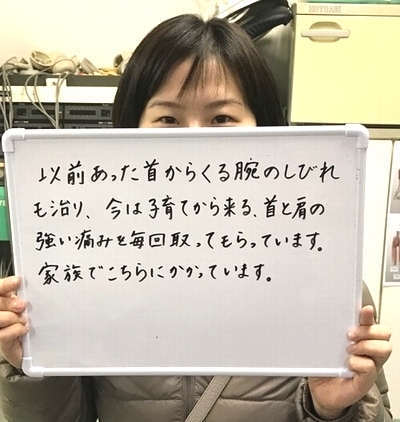 HOTBABI
以前あった首からくる腕のしびれ
も治り、今は子育てから来る、首と肩の
強い痛みを毎回取ってもらっています。
家族でこちらにかかっています。